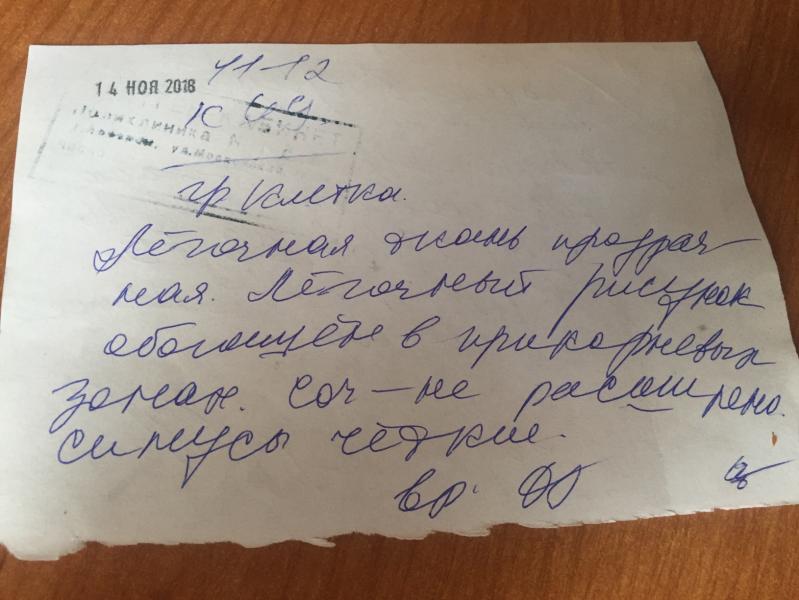 14 НОЯ 2018 11-12
Поликлиника
гр клетка.
Лёгочная ткань прозрач
ная. Лёгочный рисунок
обогощён в прикорневых
зонах. Соч-не расширено.
синусы чёткие.
вр.